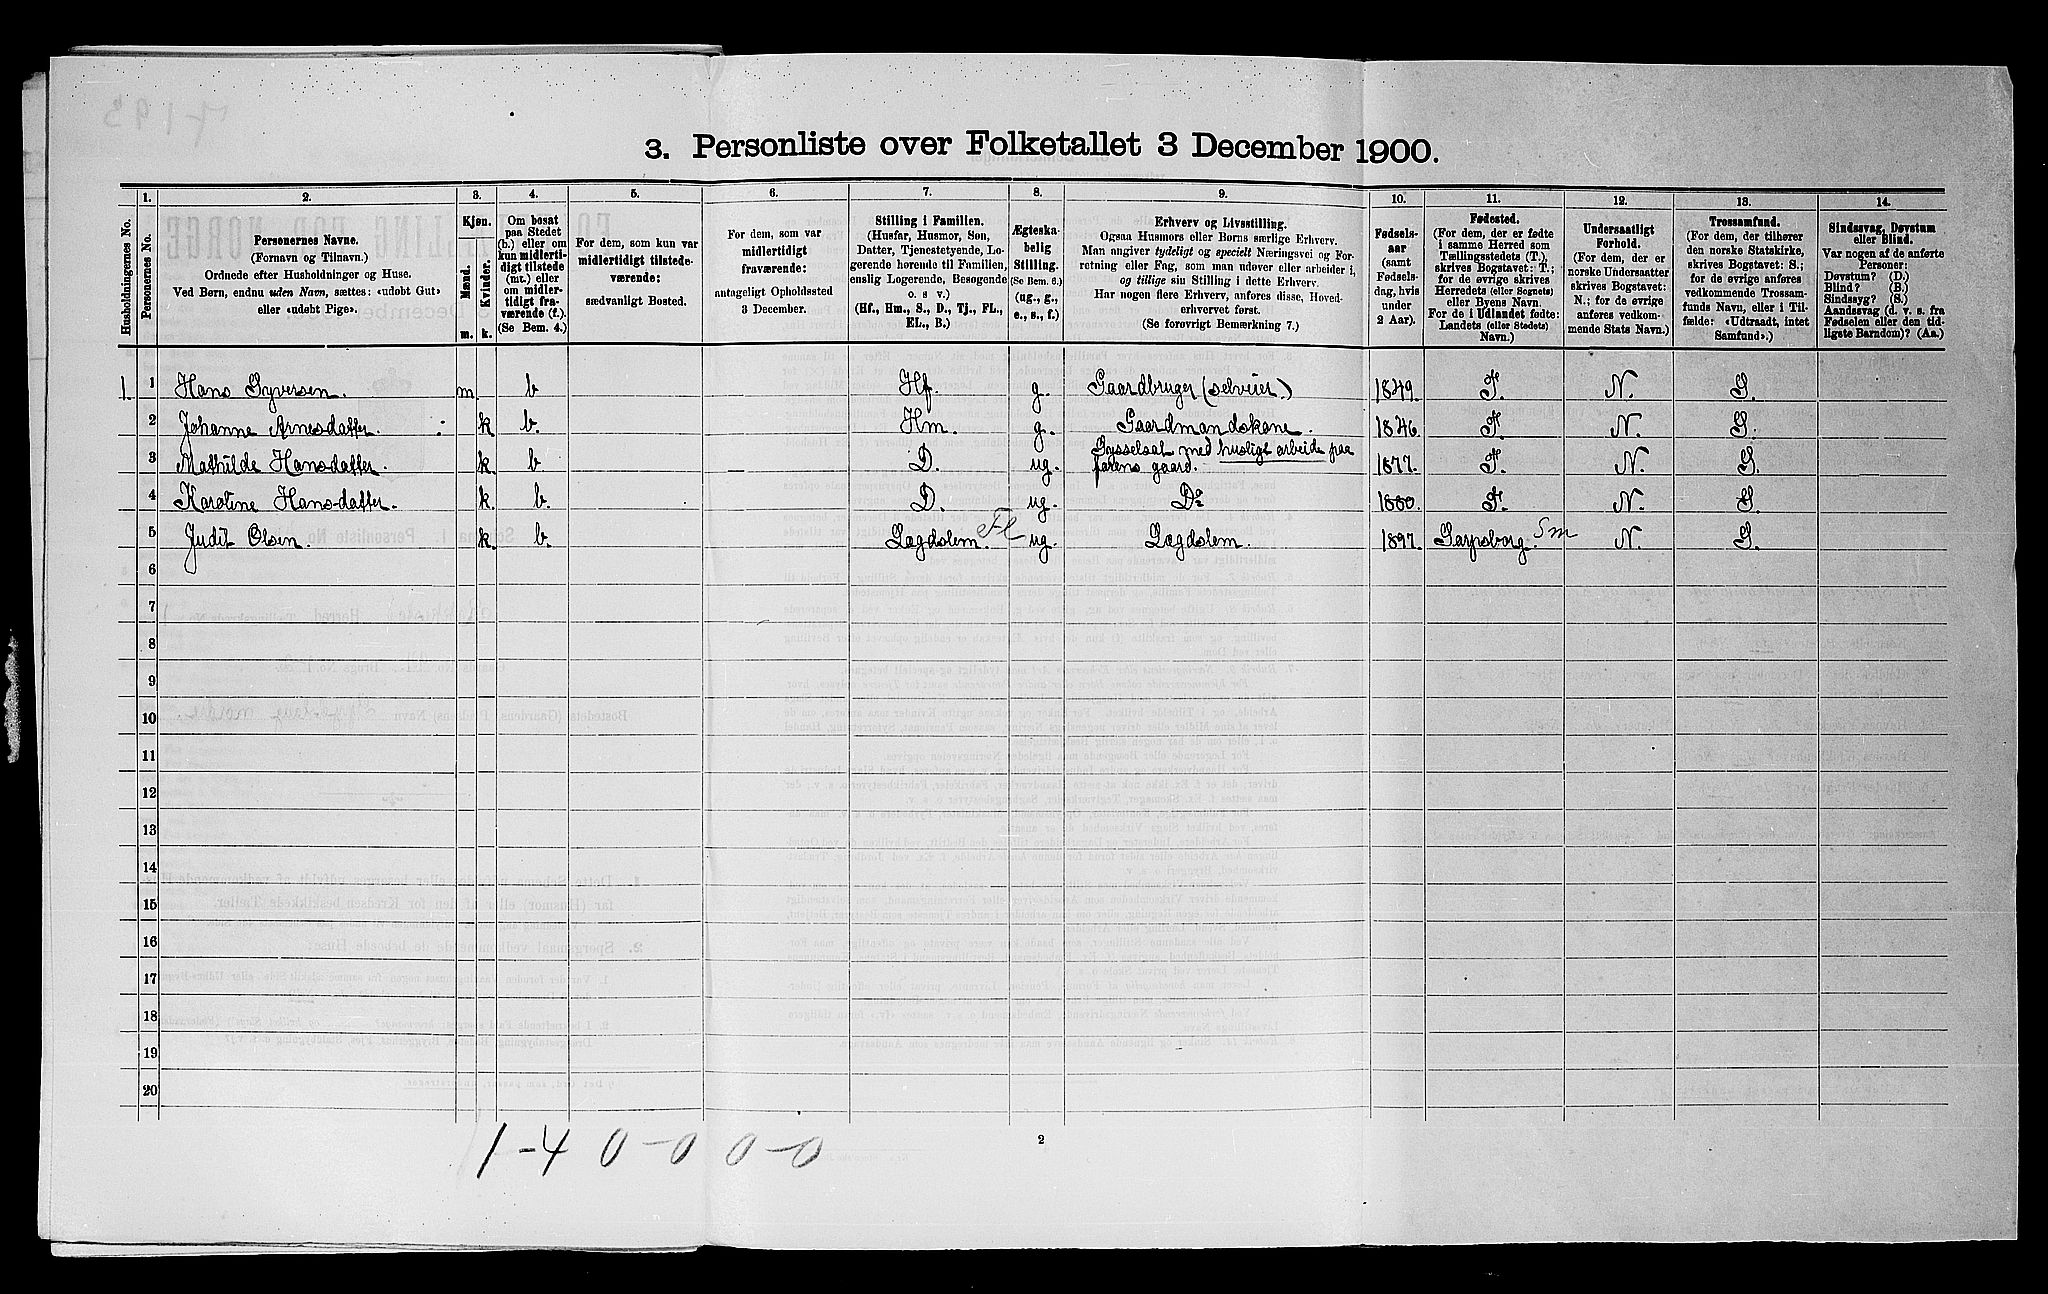 3. Personliste over Folketallet 3 December 1900.
1. 2. 3. 4. 5. 6. 7. 8. 9. 10. 11. 12. 13. 14.
Husholdningernes No.
Personernes No.
Personernes Navne.
(Fornavn og Tilnavn.)
Ordnede efter Husholdninger og Huse.
Ved Børn, endnu uden Navn, sættes: «udøbt Gut»
eller «udøbt Pige».
Kjøn.
Mænd.
Kvinder.
m. k.
Om bosat
paa Stedet
(b.) eller om
kun midlerti-
digt tilstede
(mt.) eller
om midler-
tidigt fra-
værende (f.).
(Se Bem. 4.)
For dem, som kun var
midlertidigt tilstede-
værende:
sædvanligt Bosted.
For dem, som var
midlertidigt
fraværende:
antageligt Opholdssted
3 December.
Stilling i Familien.
(Husfar, Husmor, Søn,
Datter, Tjenestetyende, Lo-
gerende hørende til Familien,
enslig Logerende, Besøgende
o. s v.)
(Hf., Hm., S., D., Tj., FL.,
EL., B.)
Ægteska-
belig
Stilling.
(Se Bem. 6.)
(ug., g.,
e., s., f.)
Erhverv og Livsstilling.
Ogsaa Husmors eller Børns særlige Erhverv.
Man angiver tydeligt og specielt Næringsvei og For-
retning eller Fag, som man udøver eller arbeider i,
og tillige sin Stilling i dette Erhverv.
Har nogen flere Erhverv, anføres disse, Hoved-
erhvervet først.
(Se forøvrigt Bemærkning 7.)
Fødsels-
aar
(samt
Fødsels-
dag, hvis
under
2 Aar).
Fødested.
(For dem, der er fødte
i samme Herred som
Tællingsstedets (T.),
skrives Bogstavet: T.;
for de øvrige skrives
Herredets (eller Sognets)
eller Byens Navn.
For de i Udlandet fødte:
Landets (eller Stedets)
Navn.)
Undersaatligt
Forhold.
(For dem, der er
norske Undersaatter
skrives Bogstavet:
N.; for de øvrige
anføres vedkom-
mende Stats Navn.)
Trossamfund.
(For dem, der tilhører
den norske Statskirke,
skrives Bogstavet: S.;
for de øvrige anføres
vedkommende Trossam-
funds Navn, eller i Til-
fælde: «Udtraadt, intet
Samfund».)
Sindssvag, Døvstum
eller Blind.
Var nogen af de anførte
Personer:
Døvstum? (D.)
Blind? (B.)
Sindssyg? (S.)
Aandssvag (d. v. s. fra
Fødselen eller den tid-
ligste Barndom)? (Aa.)
1. 1 Hans Syversen. m. b Hf. g. Gaardbruger (selveier.) 1849. T. N. S.
2 Johanne Arnesdatter. k b. Hm. g. Gaardmandskone. 1846. T. N. S.
3 Mathilde Hansdatter. k. b D. ug. Sysselsat med husligt arbeide paa
farens gaard. 1877. T. N. S.
4 Karoline Hansdatter. k. b. D. ug. Do 1880. T. N. S.
5 Judit Olsen. k. b. Lægdslem. Fl ug. Lægdslem. 1897. Sarpsborg. Sm N. S.
6
7
8
9
10
11
12
13
14
15
16
17
18
19
20
1-4 0-0 0-0
2